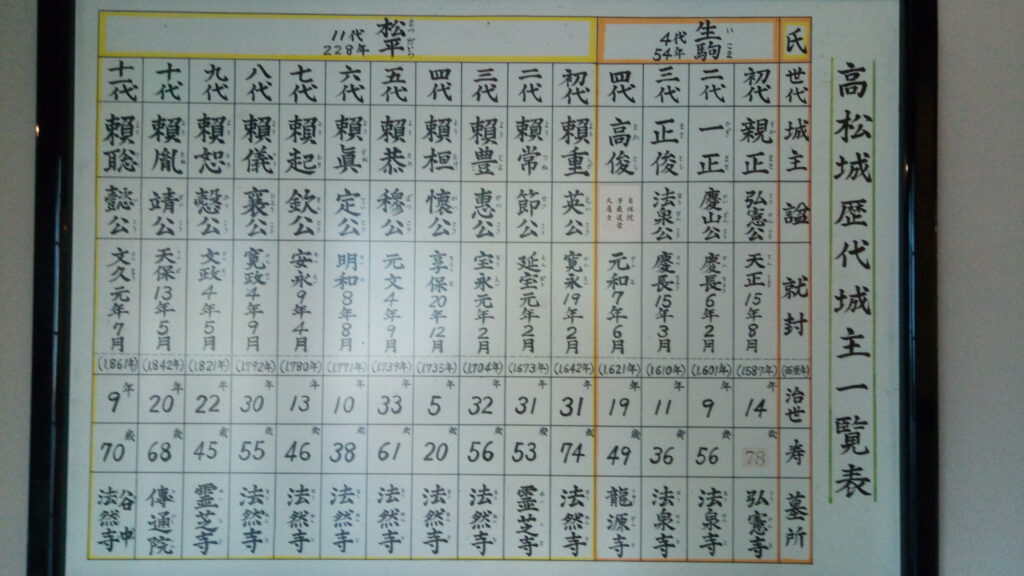 高松城歴代城主一覧表
氏 世代 城主 諡 就封 (西暦年) 治世 寿 墓所
生駒 4代 54年
初代 親正 弘憲公 天正15年8月 (1587年) 14年 78歳 弘憲寺
二代 一正 慶山公 慶長6年2月 (1601年) 9年 56歳 法泉寺
三代 正俊 法泉公 慶長15年3月 (1610年) 11年 36歳 法泉寺
四代 高俊 元和7年6月 (1621年) 19年 49歳 龍源寺
松平 11代 228年
初代 頼重 英公 寛永19年2月 (1642年) 31年 74歳 法然寺
二代 頼常 節公 延宝元年2月 (1673年) 31年 53歳 霊芝寺
三代 頼豊 惠公 宝永元年2月 (1704年) 32年 56歳 法然寺
四代 頼桓 懐公 享保20年12月 (1735年) 5年 20歳 法然寺
五代 頼恭 穆公 元文4年9月 (1739年) 33年 61歳 法然寺
六代 頼眞 定公 明和8年8月 (1771年) 10年 38歳 法然寺
七代 頼起 欽公 安永9年4月 (1780年) 13年 46歳 法然寺
八代 頼儀 襄公 寛政4年9月 (1792年) 30年 55歳 法然寺
九代 頼恕 愨公 文政4年5月 (1821年) 22年 45歳 霊芝寺
十代 頼胤 靖公 天保13年5月 (1842年) 20年 68歳 傳通院
十一代 頼聡 懿公 文久元年7月 (1861年) 9年 70歳 谷中法然寺